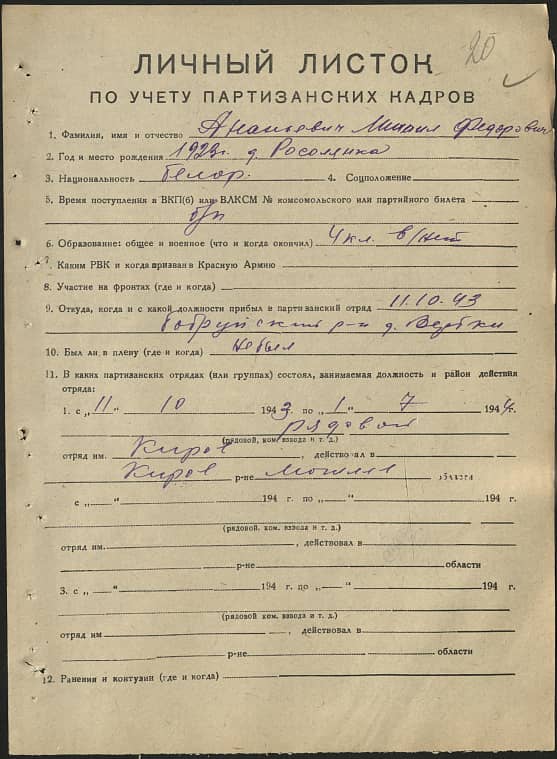 20
ЛИЧНЫЙ ЛИСТОК
ПО УЧЕТУ ПАРТИЗАНСКИХ КАДРОВ
1. Фамилия, имя и отчество Ананьевич Михаил Федорович
2. Год и место рождения 1923г. д. Росолянка
3. Национальность белор. 4. Соцположение
5. Время поступления в ВКП(б) или ВЛКСМ № комсомольского или партийного билета
б/п
6. Образование: общее и военное (что и когда окончил) 4 кл. в/нет
7. Каким РВК и когда призван в Красную Армию
8. Участие на фронтах (где и когда)
9. Откуда, когда и с какой должности прибыл в партизанский отряд 11.10-43
Бобруйский р-н д. Вербки
10. Был ли в плену (где и когда) не был
11. В каких партизанских отрядах (или группах) состоял, занимаемая должность и район действия
отряда:
1. с „ 11 " 10 1943 г. по „ 1 " 7 1944 г.
рядовой
(рядовой, ком. взвода и т. д.)
отряд им. Киров , действовал в
Киров р-не Могилев области
с „ " 194 г. по „ " 194 г.
(рядовой, ком. взвода и т. д.)
отряд им. , действовал в
р-не области
3. с „ " 194 г. по „ " 194 г.
(рядовой, ком. взвода и т. д.)
отряд им , действовал в
р-не области
12. Ранения и контузии (где и когда)